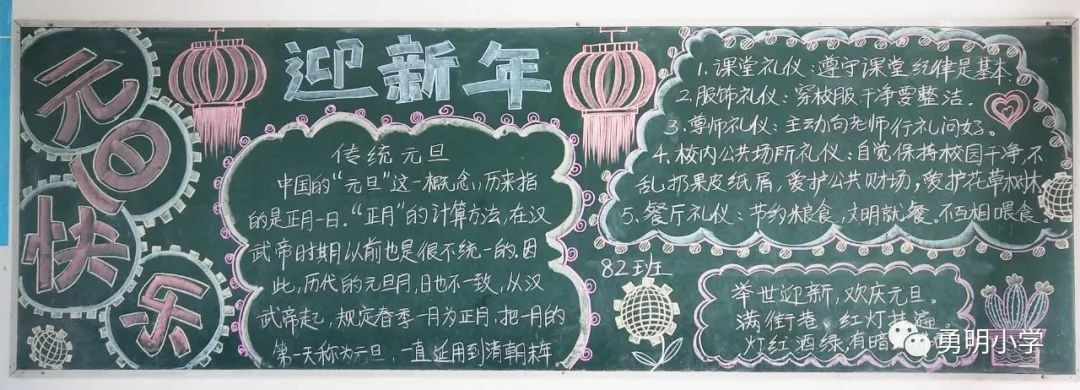 元旦快乐
迎新年
传统元旦
中国的“元旦”这一概念,历来指
的是正月一日.“正月”的计算方法,在汉
武帝时期以前也是很不统一的.因
此,历代的元旦月,日也不一致,从汉
武帝起,规定春季一月为正月,把一月的
第一天称为元旦,一直延用到清朝末年.
1.课堂礼仪:遵守课堂纪律是基本.
2.服饰礼仪:穿校服干净要整洁.
3.尊师礼仪:主动向老师行礼问好。
4.校内公共场所礼仪:自觉保持校园干净,不
乱扔果皮纸屑,爱护公共财场,爱护花草树木
5.餐厅礼仪:节约粮食,文明就餐。不互相喂食.
82班
举世迎新,欢庆元旦。
满街巷、红灯
灯红酒绿有暗
勇明小学